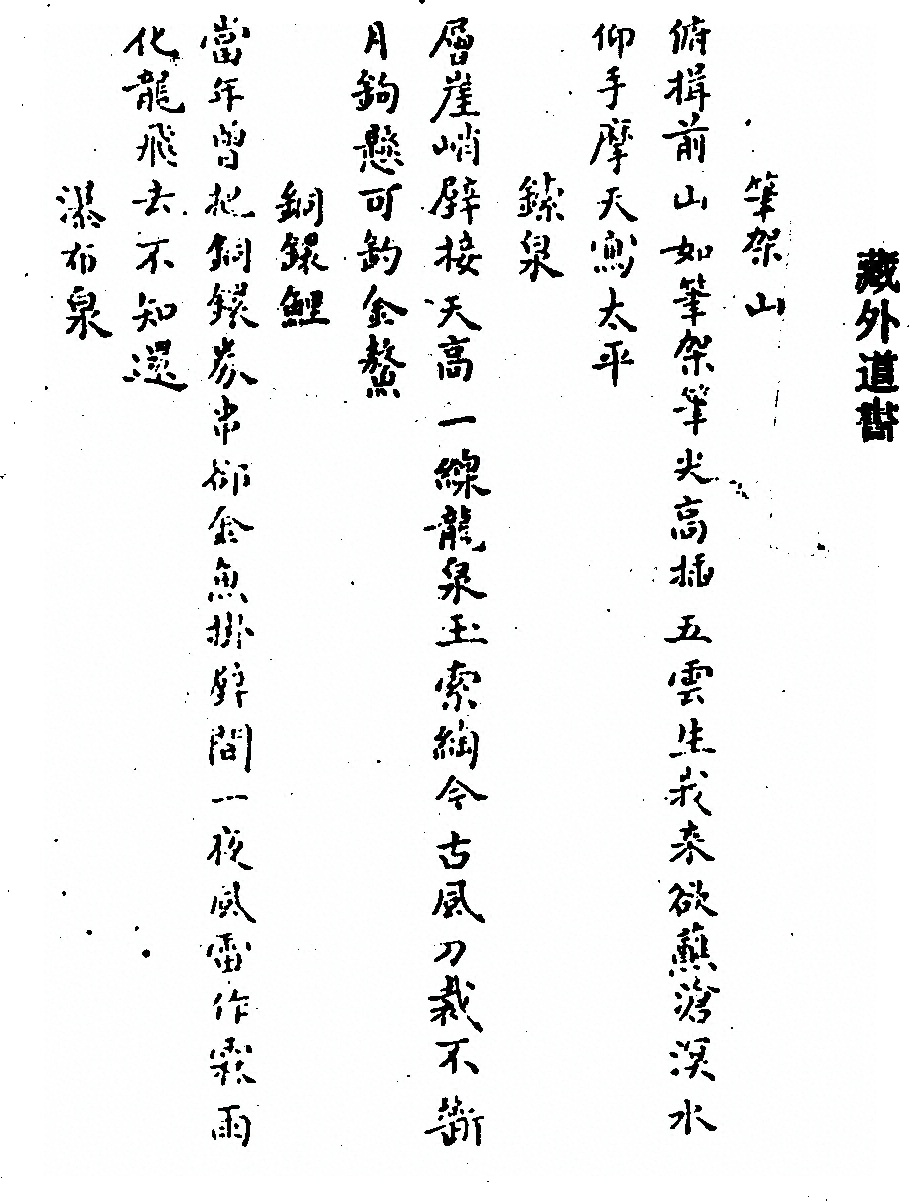 藏外道書
筆架山
俯揖前山如筆架筆尖高插五雲生我来欲蘸滄溟水
仰手摩天寫太平
鎍泉
層崖峭壁接天高一線龍泉玉索綯今古風刀裁不斷
月鈎懸可釣金鰲
銅鐶鯉
當年曾把銅鐶券帛卻金魚掛壁間一夜風雷作霖雨
化龍飛去不知還
瀑布泉